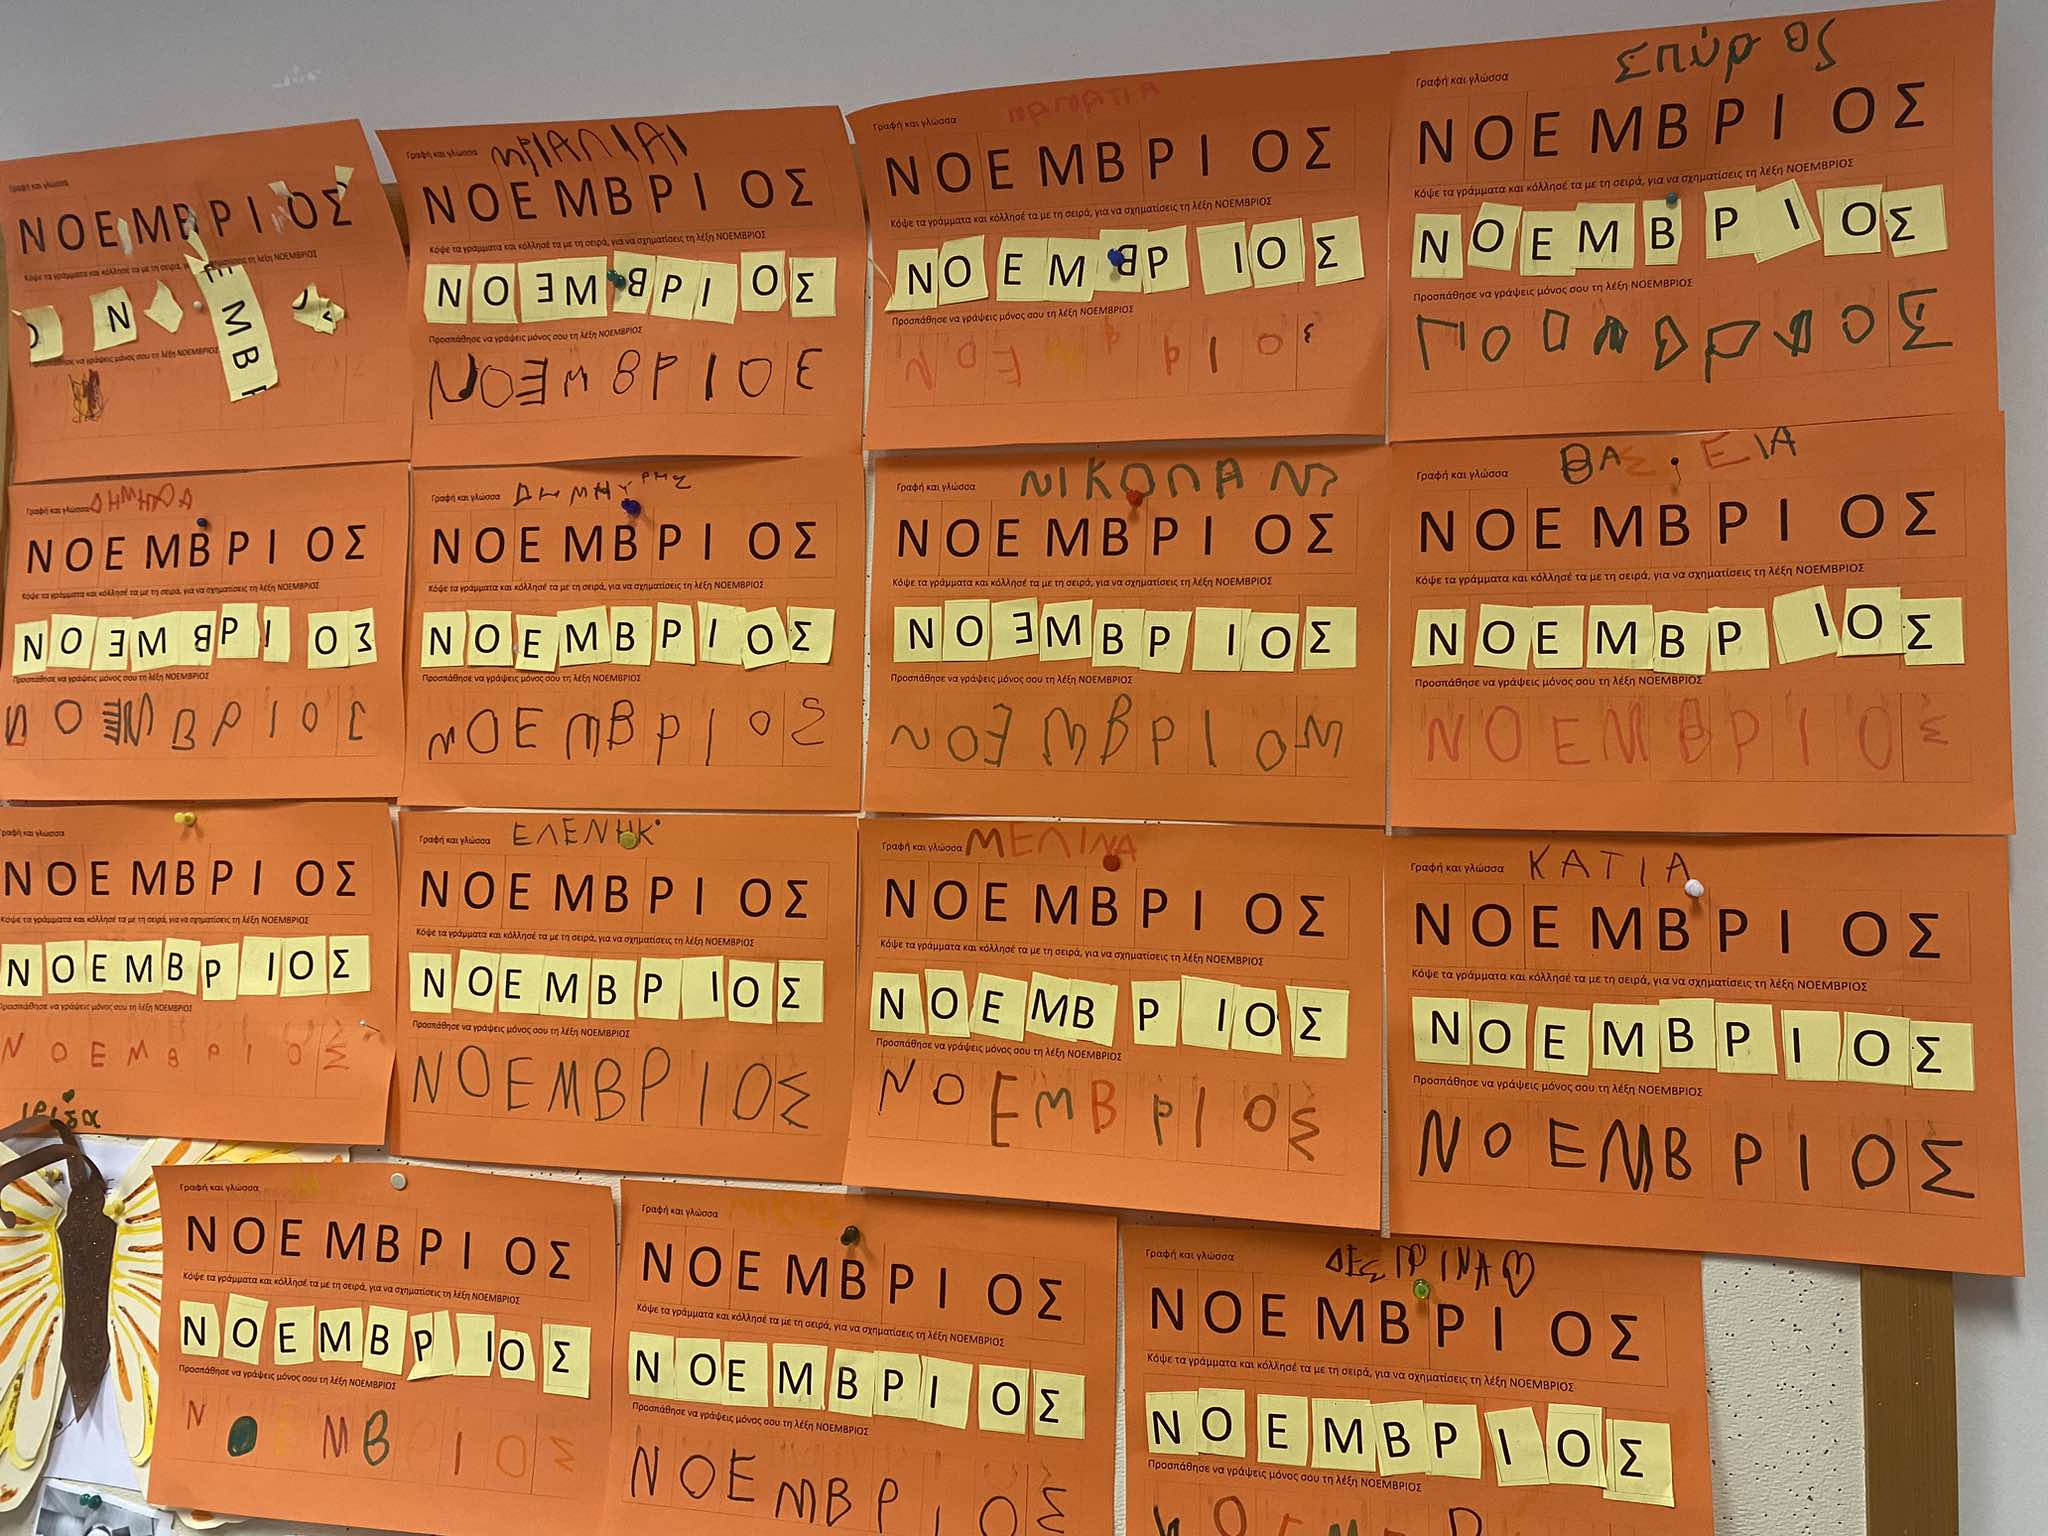 Γραφή και γλώσσα
ΝΟΕΜΒΡΙΟΣ
Κόψε τα γράμματα και κόλλησέ τα με τη σειρά,
Ν
ΕΜΒΡ
Προσπάθησε να γράψεις μόνος σου τη λέξη ΝΟΕΜΒΡΙΟΣ
Γραφή και γλώσσα
ΝΟΕΜΒΡΙΟΣ
Κόψε τα γράμματα και κόλλησέ τα με τη σειρά, για να σχηματίσεις τη λέξη ΝΟΕΜΒΡΙΟΣ
ΝΟΕΜΒΡΙΟΣ
Προσπάθησε να γράψεις μόνος σου τη λέξη ΝΟΕΜΒΡΙΟΣ
ΝΟΕΜΒΡΙΟΣ
Γραφή και γλώσσα
ΝΟΕΜΒΡΙΟΣ
Κόψε τα γράμματα και κόλλησέ τα με τη σειρά, για να σχηματίσεις τη λέξη ΝΟΕΜΒΡΙΟΣ
ΝΟΕΜΒΡΙΟΣ
Προσπάθησε να γράψεις μόνος σου τη λέξη ΝΟΕΜΒΡΙΟΣ
Γραφή και γλώσσα Σπύρος
ΝΟΕΜΒΡΙΟΣ
Κόψε τα γράμματα και κόλλησέ τα με τη σειρά, για να σχηματίσεις τη λέξη ΝΟΕΜΒΡΙΟΣ
ΝΟΕΜΒΡΙΟΣ
Προσπάθησε να γράψεις μόνος σου τη λέξη ΝΟΕΜΒΡΙΟΣ
Γραφή και γλώσσα
ΝΟΕΜΒΡΙΟΣ
Κόψε τα γράμματα και κόλλησέ τα με τη σειρά, για να σχηματίσεις τη λέξη ΝΟΕΜΒΡΙΟΣ
ΝΟΕΜΒΡΙΟΣ
Προσπάθησε να γράψεις μόνος σου τη λέξη ΝΟΕΜΒΡΙΟΣ
ΝΟΕΜΒΡΙΟΣ
Γραφή και γλώσσα
ΝΟΕΜΒΡΙΟΣ
Κόψε τα γράμματα και κόλλησέ τα με τη σειρά, για να σχηματίσεις τη λέξη ΝΟΕΜΒΡΙΟΣ
ΝΟΕΜΒΡΙΟΣ
Προσπάθησε να γράψεις μόνος σου τη λέξη ΝΟΕΜΒΡΙΟΣ
ΝΟΕΜΒΡΙΟΣ
Γραφή και γλώσσα
ΝΟΕΜΒΡΙΟΣ
Κόψε τα γράμματα και κόλλησέ τα με τη σειρά, για να σχηματίσεις τη λέξη ΝΟΕΜΒΡΙΟΣ
ΝΟΕΜΒΡΙΟΣ
Προσπάθησε να γράψεις μόνος σου τη λέξη ΝΟΕΜΒΡΙΟΣ
ΝΟΕΜΒΡΙΟΣ
Γραφή και γλώσσα
ΝΟΕΜΒΡΙΟΣ
Κόψε τα γράμματα και κόλλησέ τα με τη σειρά, για να σχηματίσεις τη λέξη ΝΟΕΜΒΡΙΟΣ
ΝΟΕΜΒΡΙΟΣ
Προσπάθησε να γράψεις μόνος σου τη λέξη ΝΟΕΜΒΡΙΟΣ
ΝΟΕΜΒΡΙΟΣ
Γραφή και γλώσσα
ΝΟΕΜΒΡΙΟΣ
Κόψε τα γράμματα και κόλλησέ τα με τη σειρά, για να σχηματίσεις τη λέξη ΝΟΕΜΒΡΙΟΣ
ΝΟΕΜΒΡΙΟΣ
Προσπάθησε να γράψεις μόνος σου τη λέξη ΝΟΕΜΒΡΙΟΣ
ΝΟΕΜΒΡΙΟΣ
Ιρίδα
Γραφή και γλώσσα ΕΛΕΝΗ Κ
ΝΟΕΜΒΡΙΟΣ
Κόψε τα γράμματα και κόλλησέ τα με τη σειρά, για να σχηματίσεις τη λέξη ΝΟΕΜΒΡΙΟΣ
ΝΟΕΜΒΡΙΟΣ
Προσπάθησε να γράψεις μόνος σου τη λέξη ΝΟΕΜΒΡΙΟΣ
ΝΟΕΜΒΡΙΟΣ
Γραφή και γλώσσα ΜΕΛΙΝΑ
ΝΟΕΜΒΡΙΟΣ
Κόψε τα γράμματα και κόλλησέ τα με τη σειρά, για να σχηματίσεις τη λέξη ΝΟΕΜΒΡΙΟΣ
ΝΟΕΜΒΡΙΟΣ
Προσπάθησε να γράψεις μόνος σου τη λέξη ΝΟΕΜΒΡΙΟΣ
ΝΟΕΜΒΡΙΟΣ
Γραφή και γλώσσα ΚΑΤΙΑ
ΝΟΕΜΒΡΙΟΣ
Κόψε τα γράμματα και κόλλησέ τα με τη σειρά, για να σχηματίσεις τη λέξη ΝΟΕΜΒΡΙΟΣ
ΝΟΕΜΒΡΙΟΣ
Προσπάθησε να γράψεις μόνος σου τη λέξη ΝΟΕΜΒΡΙΟΣ
ΝΟΕΜΒΡΙΟΣ
Γραφή και γλώσσα
ΝΟΕΜΒΡΙΟΣ
Κόψε τα γράμματα και κόλλησέ τα με τη σειρά, για να σχηματίσεις τη λέξη ΝΟΕΜΒΡΙΟΣ
ΝΟΕΜΒΡΙΟΣ
Προσπάθησε να γράψεις μόνος σου τη λέξη ΝΟΕΜΒΡΙΟΣ
ΝΟΕΜΒ ΙΟΣ
Γραφή και γλώσσα
ΝΟΕΜΒΡΙΟΣ
Κόψε τα γράμματα και κόλλησέ τα με τη σειρά, για να σχηματίσεις τη λέξη ΝΟΕΜΒΡΙΟΣ
ΝΟΕΜΒΡΙΟΣ
Προσπάθησε να γράψεις μόνος σου τη λέξη ΝΟΕΜΒΡΙΟΣ
ΝΟΕΜΒΡΙΟΣ
Γραφή και γλώσσα ΔΕΣΠΙΝΑ
ΝΟΕΜΒΡΙΟΣ
Κόψε τα γράμματα και κόλλησέ τα με τη σειρά, για να σχηματίσεις τη λέξη ΝΟΕΜΒΡΙΟΣ
ΝΟΕΜΒΡΙΟΣ
Προσπάθησε να γράψεις μόνος σου τη λέξη ΝΟΕΜΒΡΙΟΣ